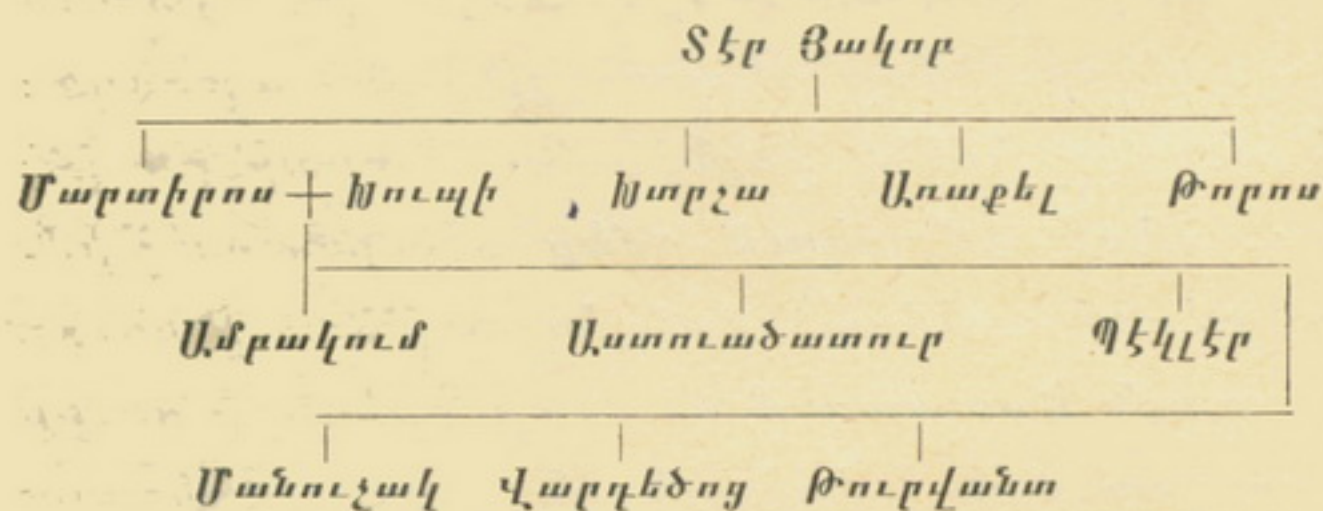 Տէր Յակոբ
Մարտիրոս Խուպի Խտրշա Առաքել Թորոս
Ամբակում Աստուածատուր Պէկլէր
Մանուշակ Վարդեծոց Թուրվանտ